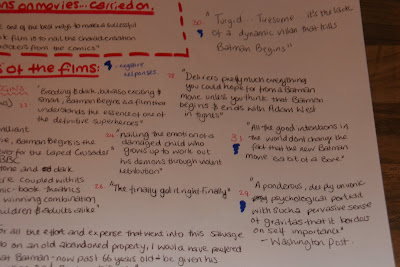 ons on movies... carried on.
one of the best ways to make a successful
ok film is to nail the characterisation
from the comics"
30. "Turgid. Tiresome... it's the lack
of a dynamic villain that kills
Batman Begins"
- negative
responses.
s of the films:
egins
"Brooding & dark, but also exciting &
smart, Batman Begins is a film that
understands the essence of one of
the definitive superheroes"
"Delivers pretty much everything
you could hope for from a Batman
movie, unless you think that Batman
begins & ends with Adam West
in tights"
brilliant
Batman Begins is the
ver for the Caped Crusader"
BBC
and dark
re coupled with its
mic-book theatrics
winning combination
children & adults alike"
"nailing the emotion of a
damaged child who
grows up to work out
his demons through violent
retribution"
26. "The finally got it right finally"
31. "All the good intentions in
the world don't change the
fact that the new Batman
movie is a bit of a bore"
29. "A ponderous, deeply ironic
psychological portrait
with such a pervasive sense
of gravitas that it borders
on self importance"
- Washington Post.
for all the effort and expense that went into this salvage
job on an old abandoned property, I would have preferred
that Batman - now past 66 years old - be given his